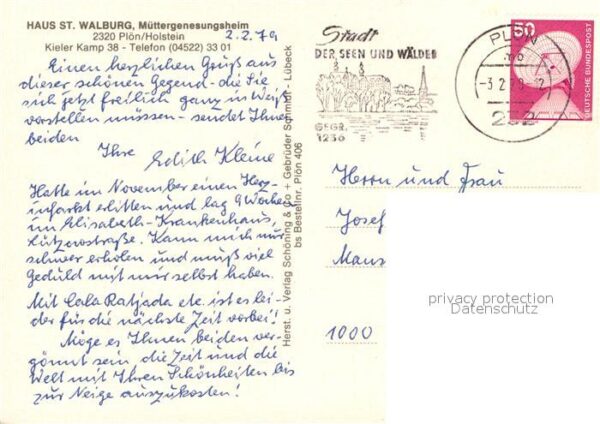 HAUS ST. WALBURG, Müttergenesungsheim
2320 Plön/Holstein
Kieler Kamp 38 - Telefon (04522) 33 01
2.2.79
Einen herzlichen Gruß aus
dieser schönen Gegend - die Sie
sich jetzt freilich ganz in Weiß
vorstellen müssen - sendet Ihnen
beiden
Ihre Edith Kleine
Hatte im November einen Herz-
infarkt erlitten und lag 9 Wochen
im Elisabeth-Krankenhaus,
Lützowstraße. Kann mich nur
schwer erholen und muß viel
Geduld mit mir selbst haben.
Mit Cala Ratjada etc. ist es lei-
der für die nächste Zeit vorbei!
Möge es Ihnen beiden ver-
gönnt sein die Zeit und die
Welt mit Ihren Schönheiten bis
zur Neige auszukosten!
Herst. u. Verlag Schöning & Co + Gebrüder Schmidt · Lübeck
bs Bestellnr. Plön 406
Stadt
DER SEEN UND WÄLDER
GEGR.
1236
PLÖN
-3.2.79
232
50
DEUTSCHE BUNDESPOST
Herrn und Frau
Josef
1000
privacy protection
Datenschutz